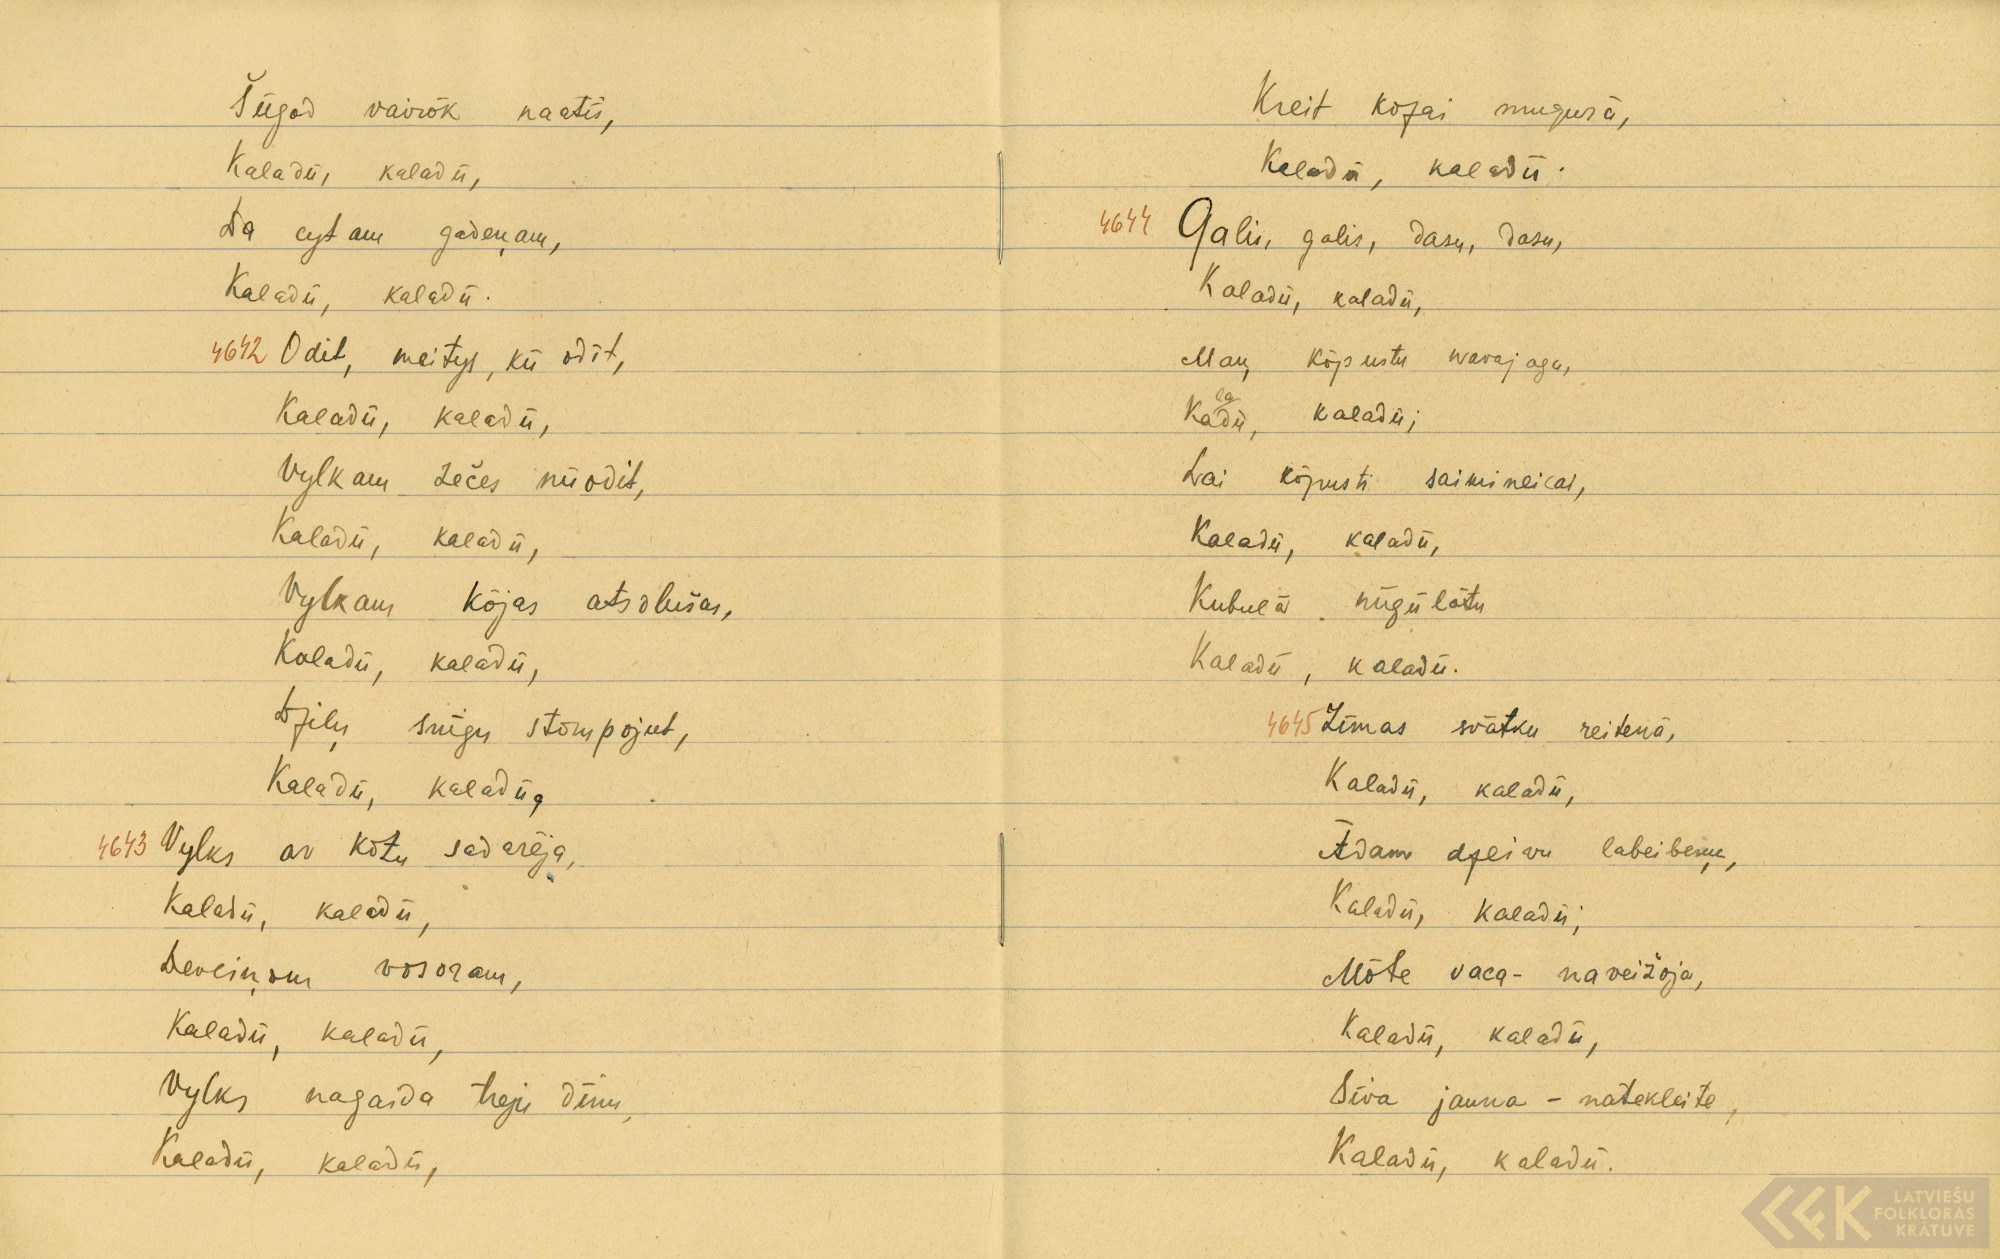 Šiigad vairōk naatīs,
Kaladū, kaladū,
Da cytam gadeņam,
Kaladū, kaladū.
4642 Odit, meitys, kū odīt,
Kaladū, kaladū,
Vylkam zečes nūodit,
Kaladū, kaladū,
Vylkam kōjas atsolušas,
Kaladū, kaladū,
Dziļu snīgu stompojut,
Kaladū, kaladū,
4643 Vylks ar kōzu sadarēja,
Kaladū, kaladū,
Deveiņom vosoram,
Kaladū, kaladū,
Vylks nagaida treju dīnu,
Kaladū, kaladū,
Kreit kozai mugurā,
Kaladū, kaladū.
4644 Galis, galis, dasu, dasu,
Kaladū, kaladū,
Maņ kōpustu navajaga,
Kaladū, kaladū;
Lai kōpusti saimineicai,
Kaladū, kaladū,
Kubulā nūgūlātu
Kaladū, kaladū.
4645 Zīmas svātku reitenā,
Kaladū, kaladū,
Ādam dzeivu labeibeņu,
Kaladū, kaladū;
Mōte vaca - naveižoja,
Kaladū, kaladū,
Sīva jauna - nātekleite,
Kaladū, kaladū.
LATVIEŠU
FOLKLORAS
KRĀTUVE